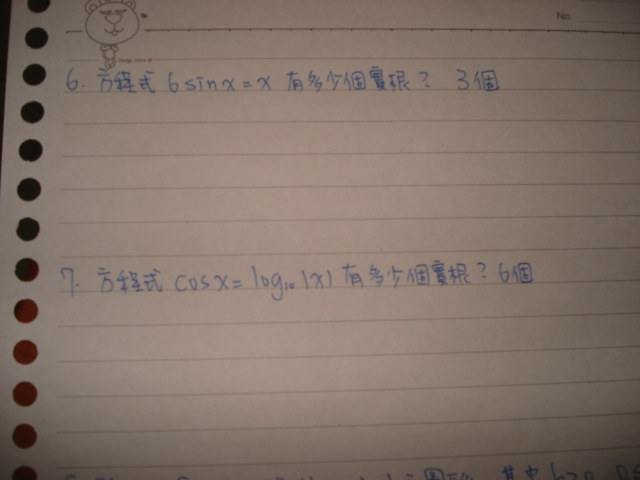 No.
6. 方程式 6 sin x = x 有多少個實根? 3個
7. 方程式 cos x = log₁₀ |x| 有多少個實根? 6個